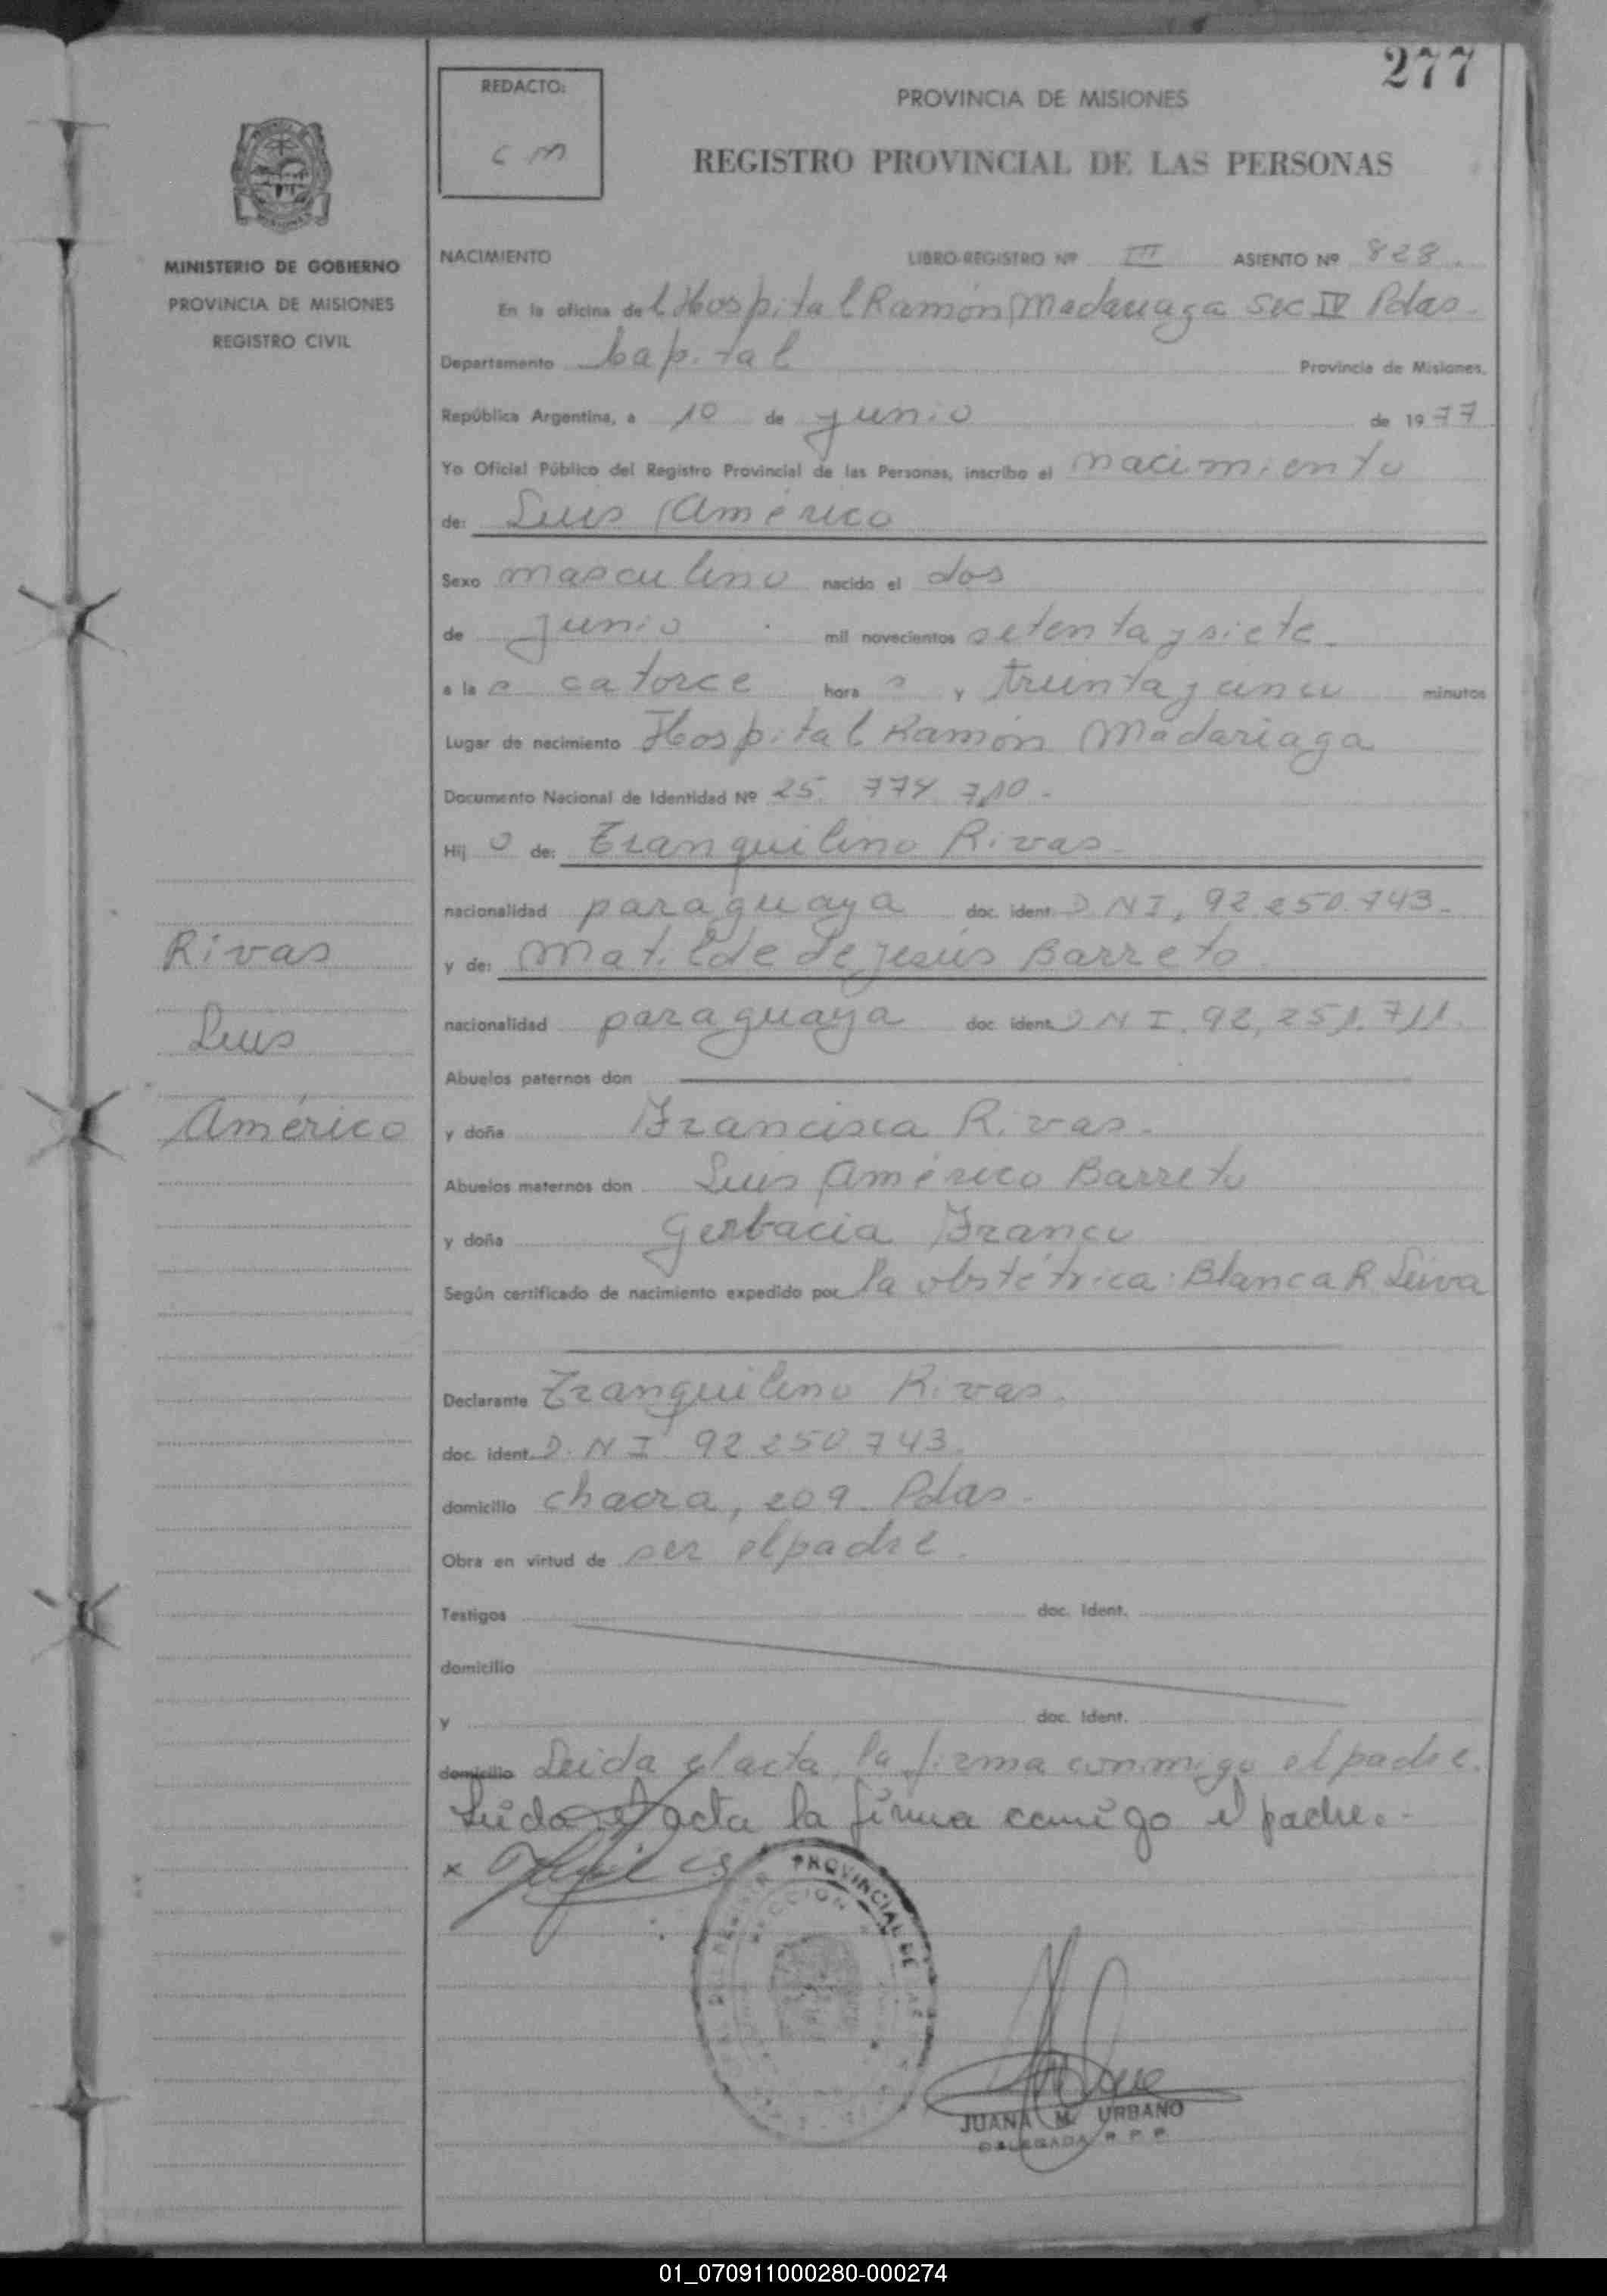 277
REDACTO:
C M
PROVINCIA DE MISIONES
REGISTRO PROVINCIAL DE LAS PERSONAS
MINISTERIO DE GOBIERNO
PROVINCIA DE MISIONES
REGISTRO CIVIL
NACIMIENTO LIBRO-REGISTRO Nº III ASIENTO Nº 828
En la oficina del Hospital Ramón Madariaga Sec IV Pdas.
Departamento Capital Provincia de Misiones.
República Argentina, a 10 de junio de 1977
Yo Oficial Público del Registro Provincial de las Personas, inscribo el nacimiento
de: Luis Américo
Sexo masculino nacido el dos
de junio mil novecientos setenta y siete
a las catorce horas y treinta y cinco minutos
Lugar de nacimiento Hospital Ramón Madariaga
Documento Nacional de Identidad Nº 25. 774 710.
Hijo de: Tranquilino Rivas
nacionalidad paraguaya doc. ident. D N I, 92 250 743.
Rivas
y de: Matilde de Jesús Barreto
nacionalidad paraguaya doc. ident. D N I. 92, 251. 711.
Luis
Abuelos paternos don
Américo
y doña Francisca Rivas.
Abuelos maternos don Luis Américo Barreto
y doña Gerbacia Franco
Según certificado de nacimiento expedido por la obstétrica: Blanca R Leiva
Declarante Tranquilino Rivas.
doc. ident. D. N I 92 250 743.
domicilio chacra, 209 Pdas.
Obra en virtud de ser el padre.
Testigos doc. Ident.
domicilio
y doc. Ident.
domicilio Leida el acta, la firma conmigo el padre.
Leida el acta la firma comigo el padre.-
x
PROVINCIAL DE
SECCION
JUANA M. URBANO
DELEGADA R. P. P.
01_070911000280-000274